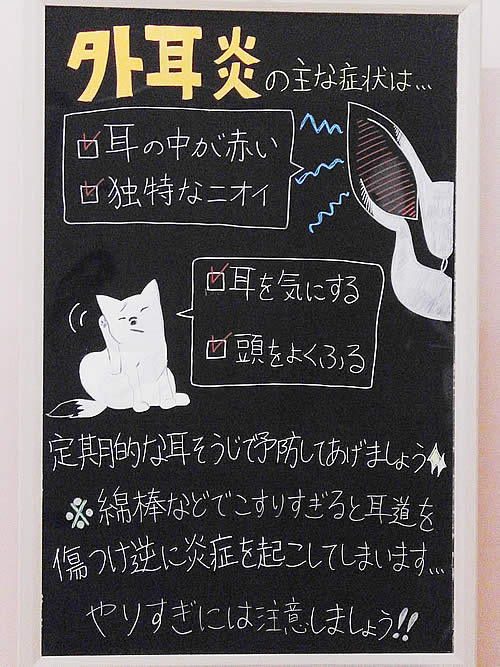 外耳炎の主な症状は…
耳の中が赤い
独特なニオイ
耳を気にする
頭をよくふる
定期的な耳そうじで予防してあげましょう
※綿棒などでこすりすぎると耳道を
傷つけ逆に炎症を起こしてしまいます…
やりすぎには注意しましょう!!